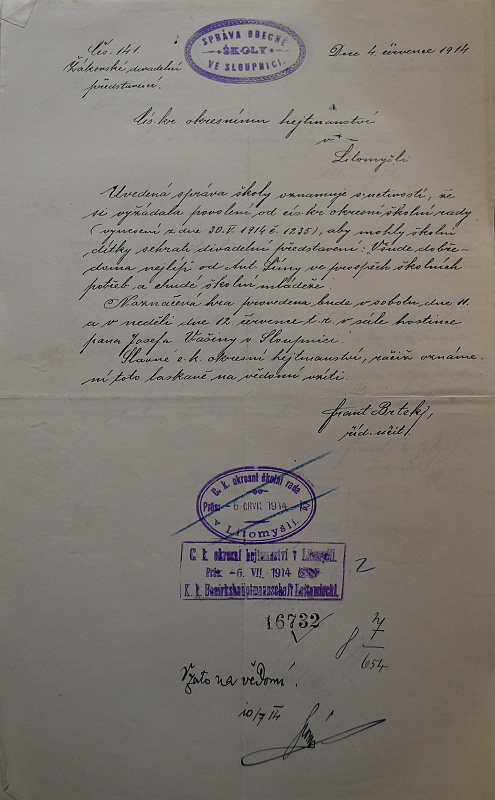 Čís. 141.
Žákovské divadelní
představení.
SPRÁVA OBECNÉ
ŠKOLY
VE SLOUPNICI.
Dne 4. července 1914
Cis. kr. okresnímu hejtmanství
v
Litomyšli
Uvedená správa školy oznamuje s uctivostí, že
si vyžádala povolení od cis. kr. okresní školní rady
(vynesení z dne 30. V. 1914 č. 1235), aby mohly školní
dítky sehrati divadelní představení: „Všude dobře
doma nejlíp" od Ant. ve prospěch školních
potřeb a chudé školní mládeže.
Naznačená hra provedena bude v sobotu dne 11.
a v neděli dne 12. července t. r. v sále hostince
pana Josefa Vašiny v Sloupnici.
Slavné c. k. okresní hejtmanství, račiž oznáme-
ní toto laskavě na vědomí vzíti.
Frant Brtek,
říd. učit.
C. k. okresní školní rada
Präs. -6. CRVC. 1914
v Litomyšli.
C. k. okresní hejtmanství v Litomyšli.
Präs. -6. VII. 1914
K. k. Bezirkshauptmannschaft Leitomischl.
2
16732
7
654
Vzato na vědomí.
10/7 14